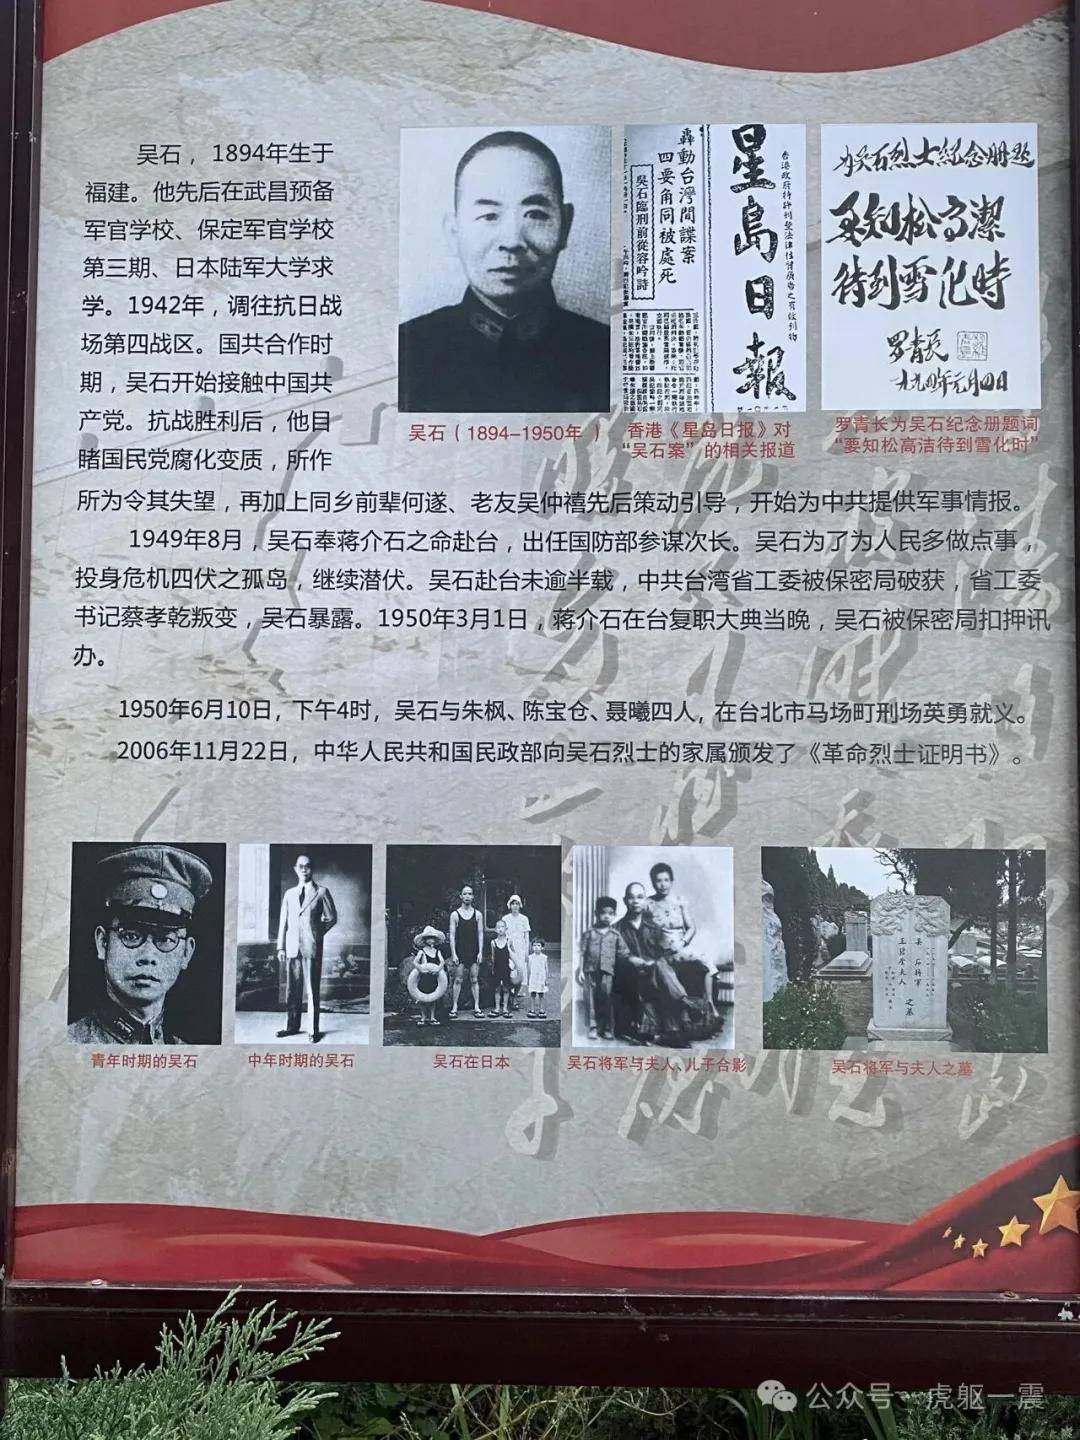 吴石，1894年生于
福建。他先后在武昌预备
军官学校、保定军官学校
第三期、日本陆军大学求
学。1942年，调往抗日战
场第四战区。国共合作时
期，吴石开始接触中国共
产党。抗战胜利后，他目
睹国民党腐化变质，所作
所为令其失望，再加上同乡前辈何遂、老友吴仲禧先后策动引导，开始为中共提供军事情报。
轟動台灣間諜案
四要角同被處死
吳石臨刑前從容吟詩
星島日報
为吴石烈士纪念册题
要知松高潔
待到雪化時
罗青长
一九九四年元月四日
吴石（1894-1950年）
香港《星岛日报》对
“吴石案”的相关报道
罗青长为吴石纪念册题词
“要知松高洁待到雪化时”
1949年8月，吴石奉蒋介石之命赴台，出任国防部参谋次长。吴石为了为人民多做点事，
投身危机四伏之孤岛，继续潜伏。吴石赴台未逾半载，中共台湾省工委被保密局破获，省工委
书记蔡孝乾叛变，吴石暴露。1950年3月1日，蒋介石在台复职大典当晚，吴石被保密局扣押讯
办。
1950年6月10日，下午4时，吴石与朱枫、陈宝仓、聂曦四人，在台北市马场町刑场英勇就义。
2006年11月22日，中华人民共和国民政部向吴石烈士的家属颁发了《革命烈士证明书》。
吴石将軍
王碧奎夫人
之墓
青年时期的吴石
中年时期的吴石
吴石在日本
吴石将军与夫人、儿子合影
吴石将军与夫人之墓
公众号·虎躯一震